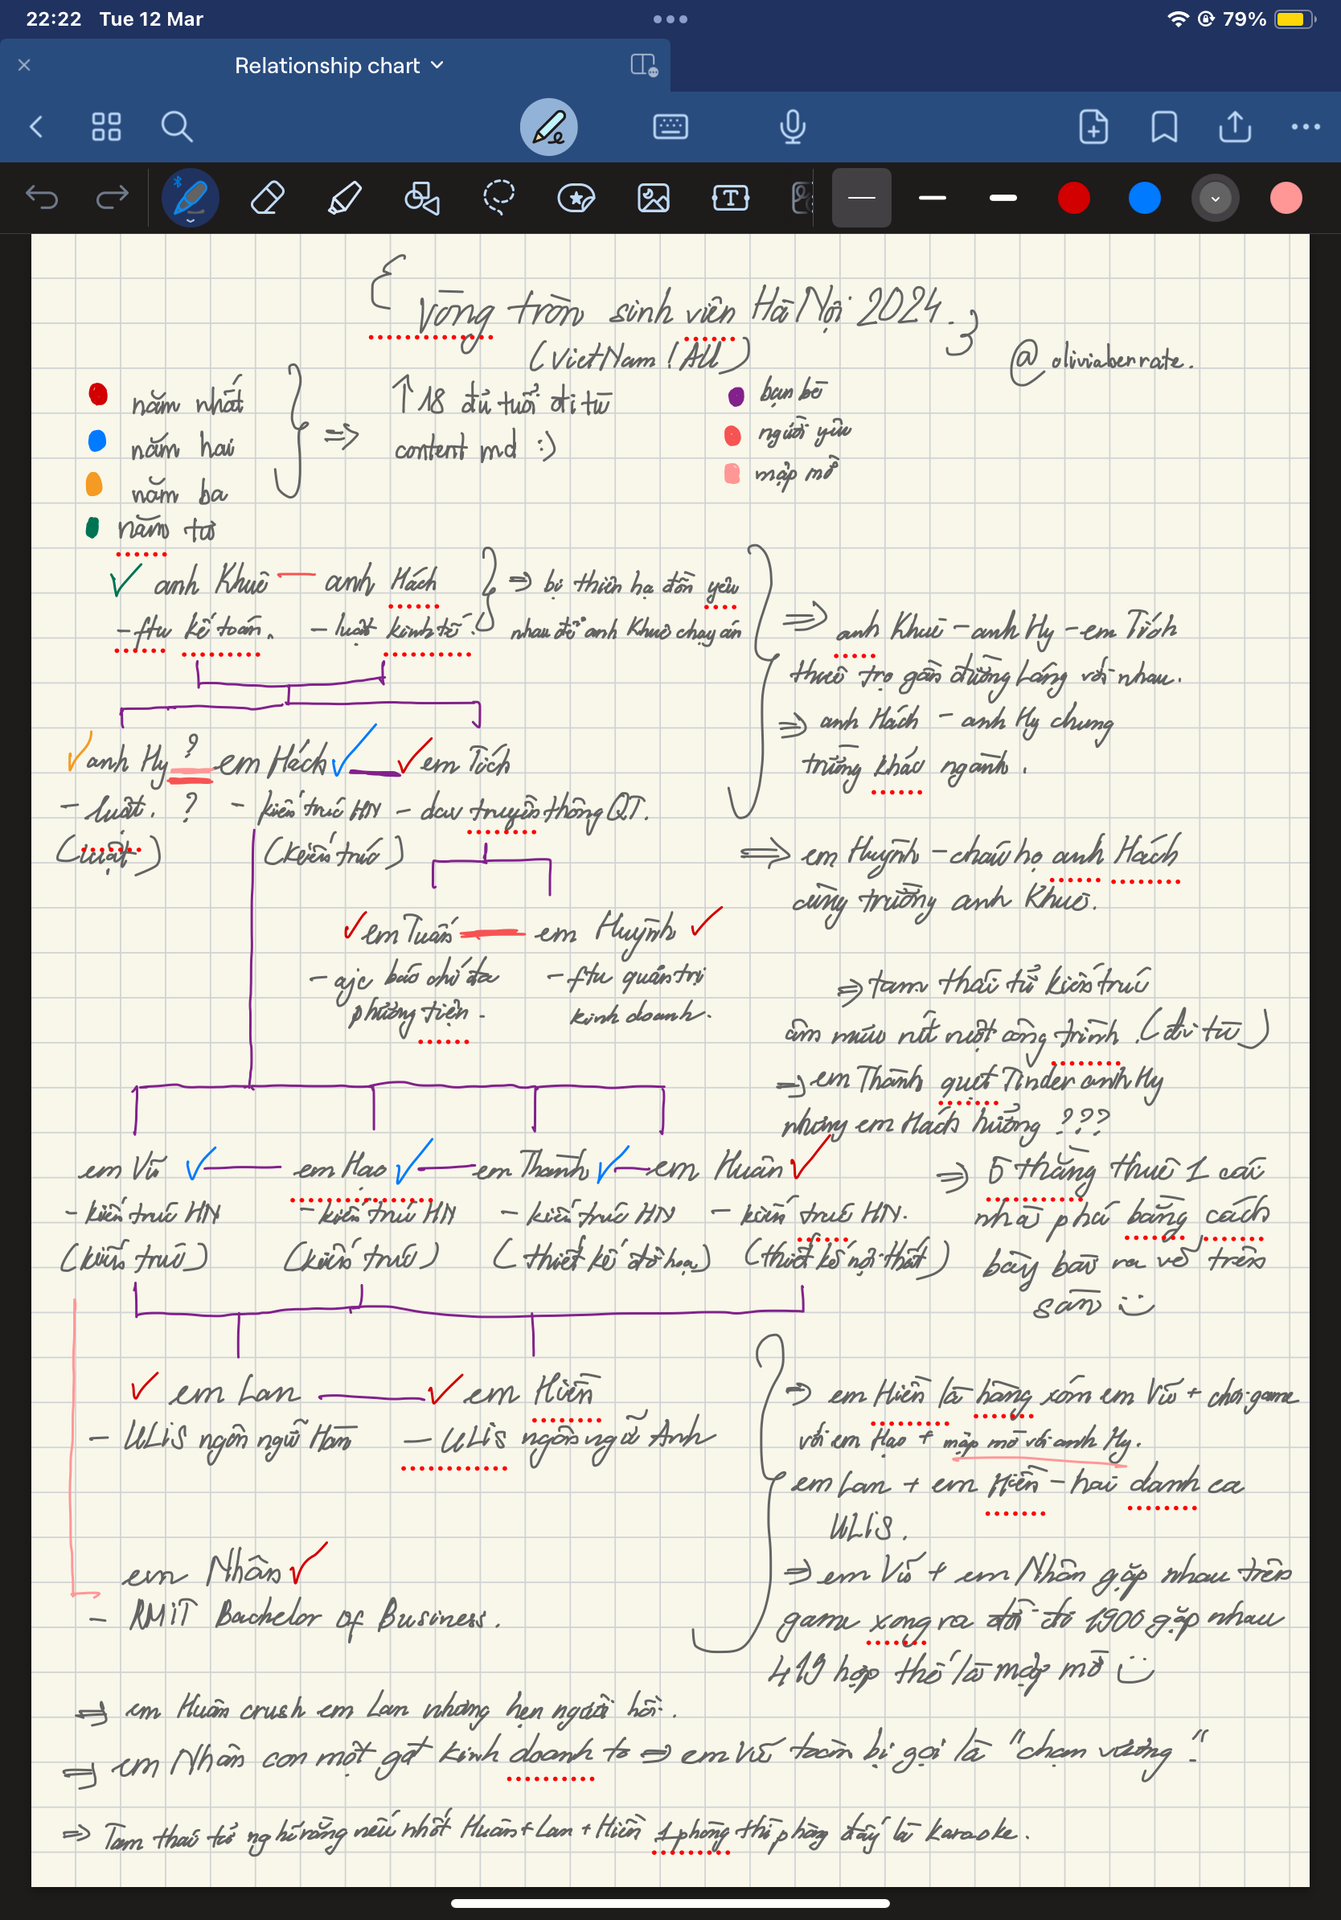 22:22 Tue 12 Mar
79%
Relationship chart
{ Vòng tròn sinh viên Hà Nội 2024. }
(VietNam!AU)
@oliviaberrate.
năm nhất
năm hai
năm ba
năm tư
⇒ ↑18 đủ tuổi đi tù
content md :)
bạn bè
người yêu
mập mờ
anh Khuê — anh Hách
- ftu kế toán. - luật kinh tế.
⇒ bị thiên hạ đồn yêu
nhau để anh Khuê chạy án
⇒ anh Khuê - anh Hy - em Tích
thuê trọ gần đường Láng với nhau.
⇒ anh Hách - anh Hy chung
trường khác ngành.
anh Hy ? em Hách — em Tích
- luật. ? - kiến trúc HN - dav truyền thông QT.
(luật) (kiến trúc)
⇒ em Huỳnh - cháu họ anh Hách
cùng trường anh Khuê.
em Tuấn — em Huỳnh
- ajc báo chí đa
phương tiện.
- ftu quản trị
kinh doanh.
⇒ tam thái tử kiến trúc
âm mưu nứt ruột công trình. (đi tù)
⇒ em Thành quẹt Tinder anh Hy
nhưng em Hách hưởng ???
em Vũ — em Hạo — em Thành — em Huân
- kiến trúc HN - kiến trúc HN - kiến trúc HN - kiến trúc HN.
(kiến trúc) (kiến trúc) (thiết kế đồ họa) (thiết kế nội thất)
⇒ 5 thằng thuê 1 cái
nhà phá bằng cách
bày bài ra vẽ trên
sàn :)
em Lan — em Hiền
- ULIS ngôn ngữ Hàn - ULIS ngôn ngữ Anh
⇒ em Hiền là hàng xóm em Vũ + chơi game
với em Hạo + mập mờ với anh Hy.
em Lan + em Hiền - hai danh ca
ULIS.
em Nhân
- RMIT Bachelor of Business.
⇒ em Vũ + em Nhân gặp nhau trên
game xong ra đời đi 1900 gặp nhau
419 hợp thế là mập mờ :)
⇒ em Huân crush em Lan nhưng hẹn người hồi.
⇒ em Nhân con một gđ kinh doanh to ⇒ em Vũ toàn bị gọi là "chạn vương"
⇒ Tam thái tử nghĩ rằng nếu nhốt Huân + Lan + Hiền 1 phòng thì phòng đấy là karaoke.